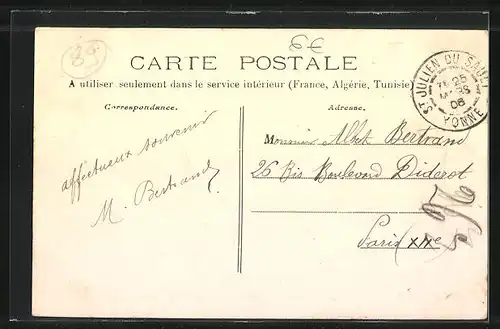 89
6€
CARTE POSTALE
A utiliser seulement dans le service intérieur (France, Algérie, Tunisie)
Correspondance.
Adresse.
ST JULIEN DU SAULT
25
MARS
08
YONNE
affectueux souvenir
M. Bertrand
Monsieur Albert Bertrand
26 Bis Boulevard Diderot
Paris XIIe